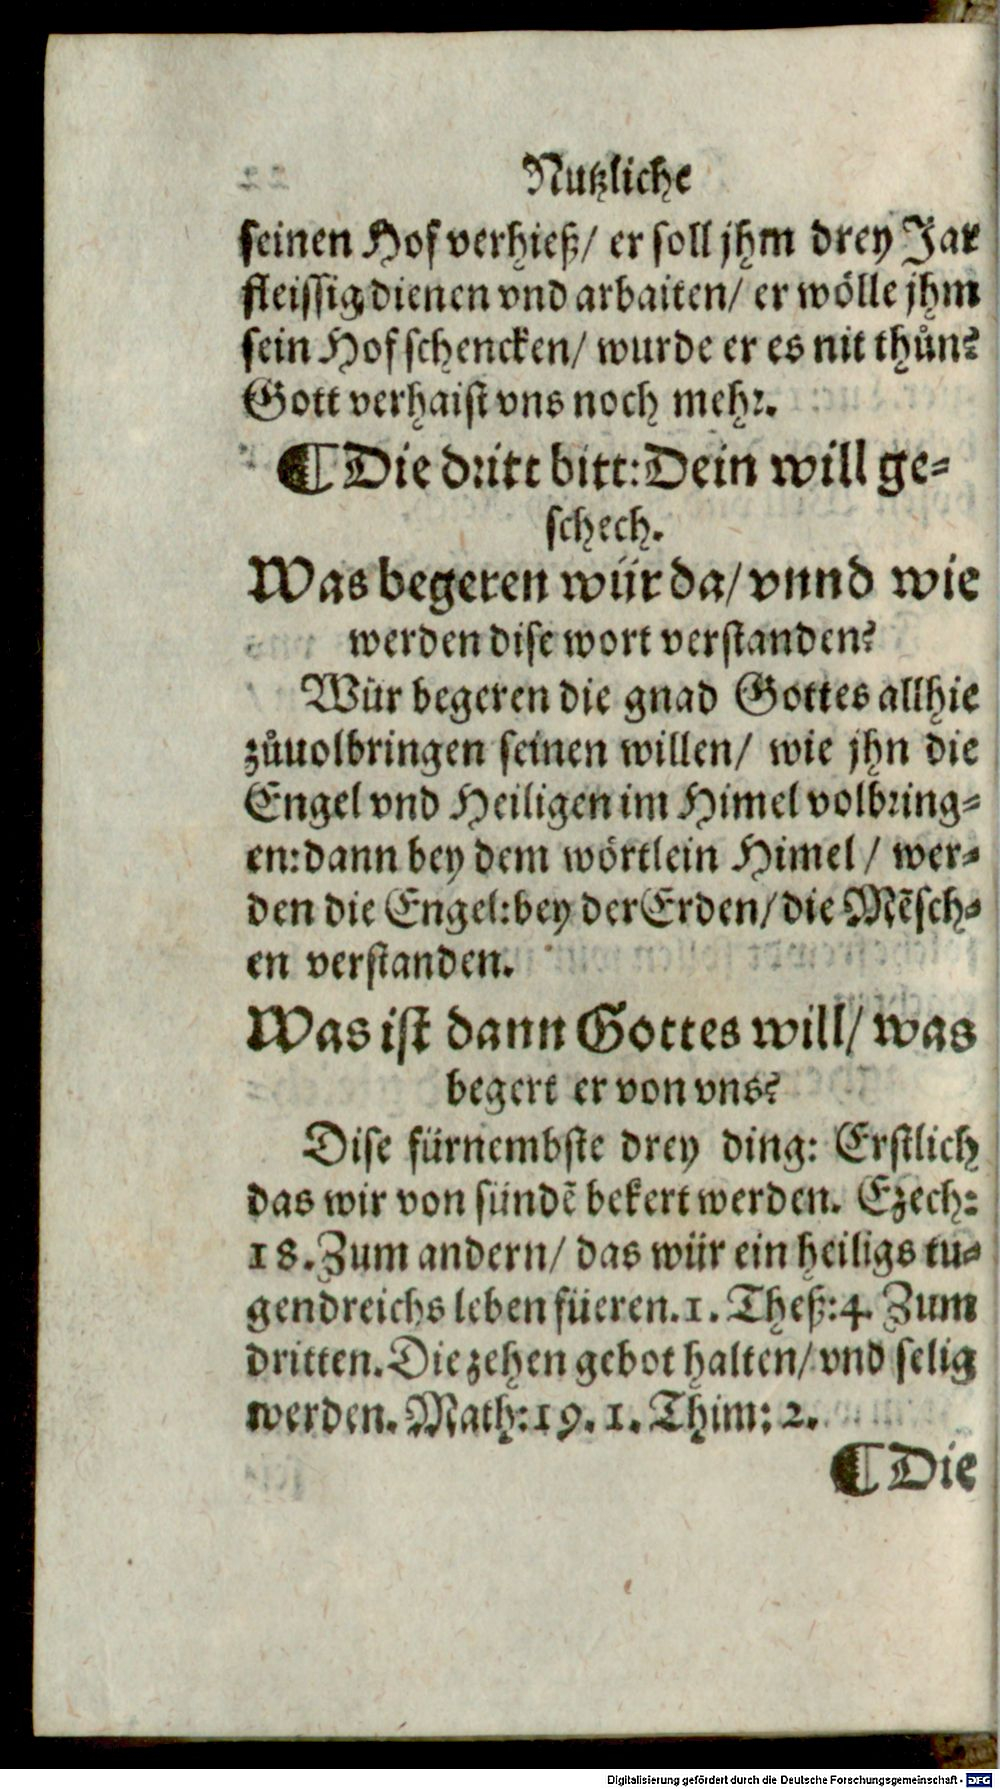 Nutzliche
seinen Hof verhieß/ er soll jhm drey Jar
fleissig dienen vnd arbaiten/ er wölle jhm
sein Hof schencken/ wurde er es nit thůn?
Gott verhaist vns noch mehr.
¶ Die dritt bitt: Dein will ge-
schech.
Was begeren wür da/ vnnd wie
werden dise wort verstanden?
Wür begeren die gnad Gottes allhie
zůuolbringen seinen willen/ wie jhn die
Engel vnd Heiligen im Himel volbring-
en: dann bey dem wörtlein Himel / wer-
den die Engel: bey der Erden/ die Mẽsch-
en verstanden.
Was ist dann Gottes will/ was
begert er von vns?
Dise fürnembste drey ding: Erstlich
das wir von sündẽ bekert werden. Ezech:
18. Zum andern/ das wür ein heiligs tu-
gendreichs leben füeren. 1. Theß: 4. Zum
dritten. Die zehen gebot halten/ vnd selig
werden. Math: 19. 1. Thim: 2.
¶ Die
Digitalisierung gefördert durch die Deutsche Forschungsgemeinschaft - DFG